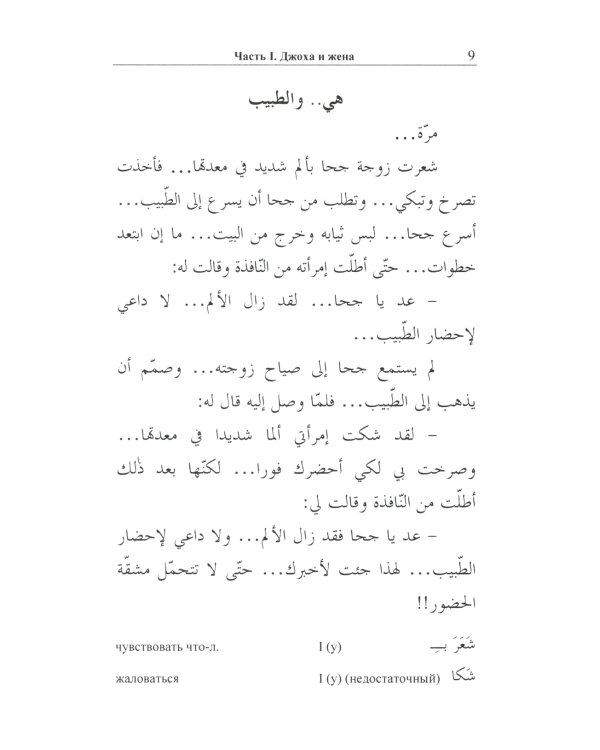 Часть I. Джоха и жена 9
هي.. والطبيب
مرّة...
شعرت زوجة جحا بألم شديد في معدتها... فأخذت
تصرخ وتبكي... وتطلب من جحا أن يسرع إلى الطّبيب...
أسرع جحا... لبس ثيابه وخرج من البيت... ما إن ابتعد
خطوات... حتّى أطلّت إمرأته من النّافذة وقالت له:
– عد يا جحا... لقد زال الألم... لا داعي
لإحضار الطّبيب...
لم يستمع جحا إلى صياح زوجته... وصمّم أن
يذهب إلى الطّبيب... فلمّا وصل إليه قال له:
– لقد شكت إمرأتي ألما شديدا في معدتها...
وصرخت بي لكي أحضرك فورا... لكنّها بعد ذلك
أطلّت من النّافذة وقالت لي:
– عد يا جحا فقد زال الألم... ولا داعي لإحضار
الطّبيب... لهذا جئت لأخبرك... حتّى لا تتحمّل مشقّة
الحضور!!
чувствовать что-л. I (у) شَعَرَ بـِ
жаловаться I (у) (недостаточный) شَكا